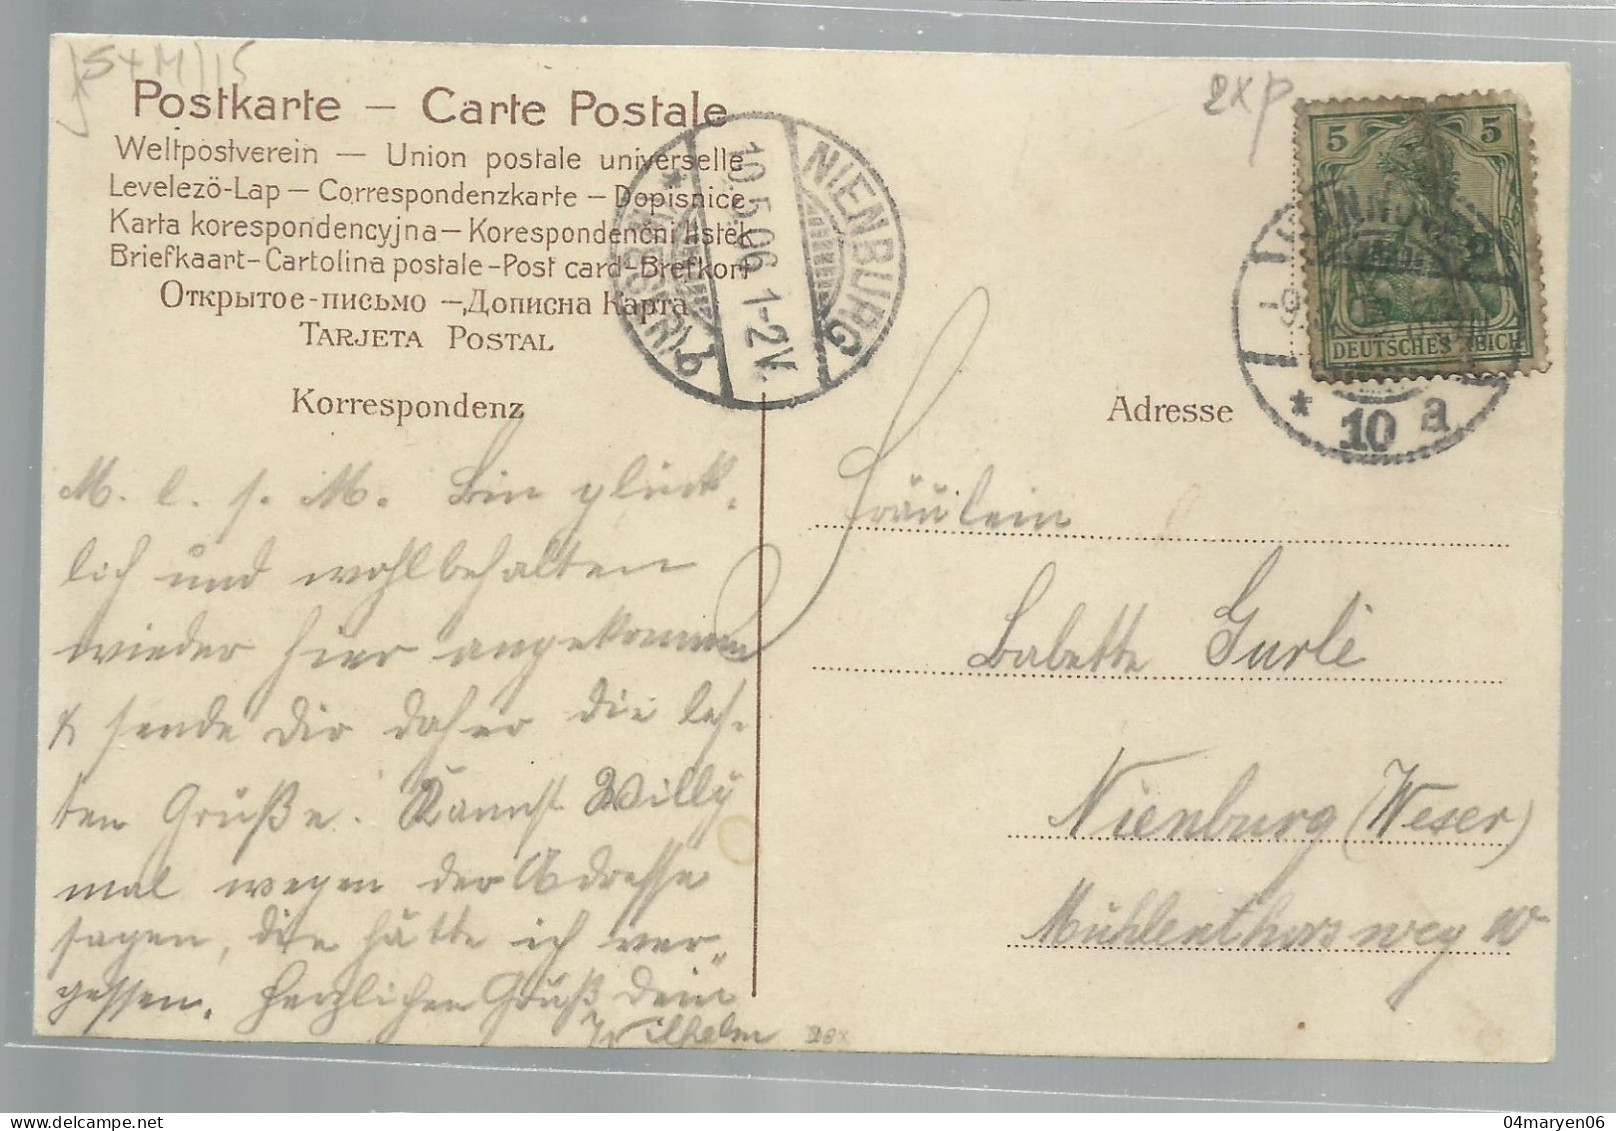 (S+M) 15
2xp
Postkarte — Carte Postale
Weltpostverein — Union postale universelle
Levelezö-Lap — Correspondenzkarte — Dopisnice
Karta korespondencyjna — Korespondenční lístek
Briefkaart - Cartolina postale - Post card - Brefkort
Открытое-письмо — Дописна Карта
TARJETA POSTAL
NIENBURG
10.5.06. 1-2N.
* (WESER) b
5 5
DEUTSCHES REICH
* 10 a
Korrespondenz
Adresse
M. l. s. M. Bin glück-
lich und wohlbehalten
wieder hier angekommen
& sende Dir daher die letz-
ten Grüße. Kannst Willy
mal wegen der Adresse
sagen, die hätte ich ver-
gessen. Herzlichen Gruß Dein
Wilhelm
Fräulein
Babette
Nienburg (Weser)
Mühlenthorsweg 10
04maryen06